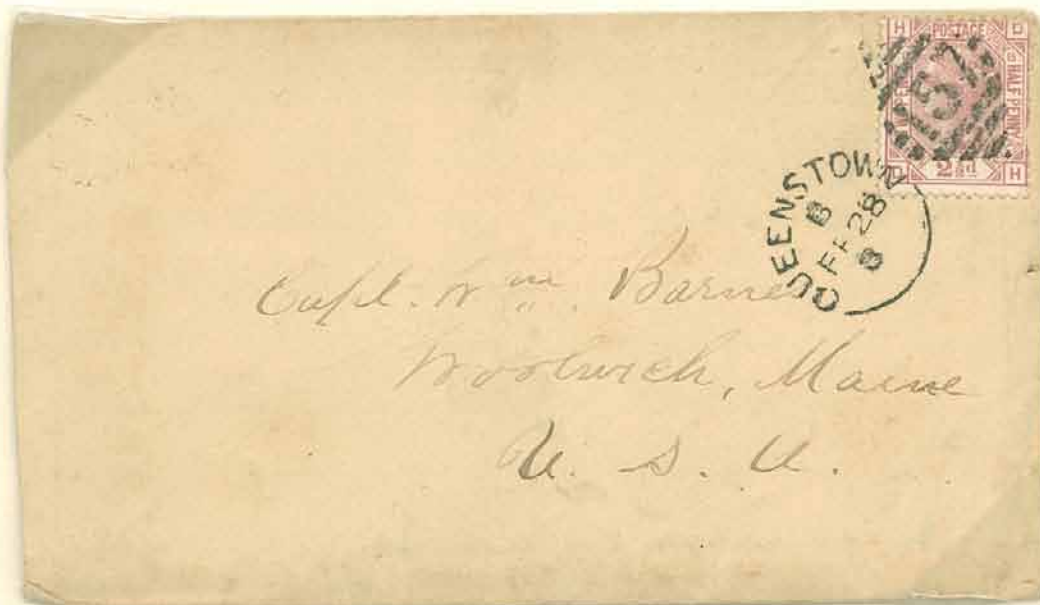 H POSTAGE D
HALF PENNY
157
2½d
H
QUEENSTOWN
B
FE 28
8
Capt. Wm. Barnes
Woolwich, Maine
U. S. A.